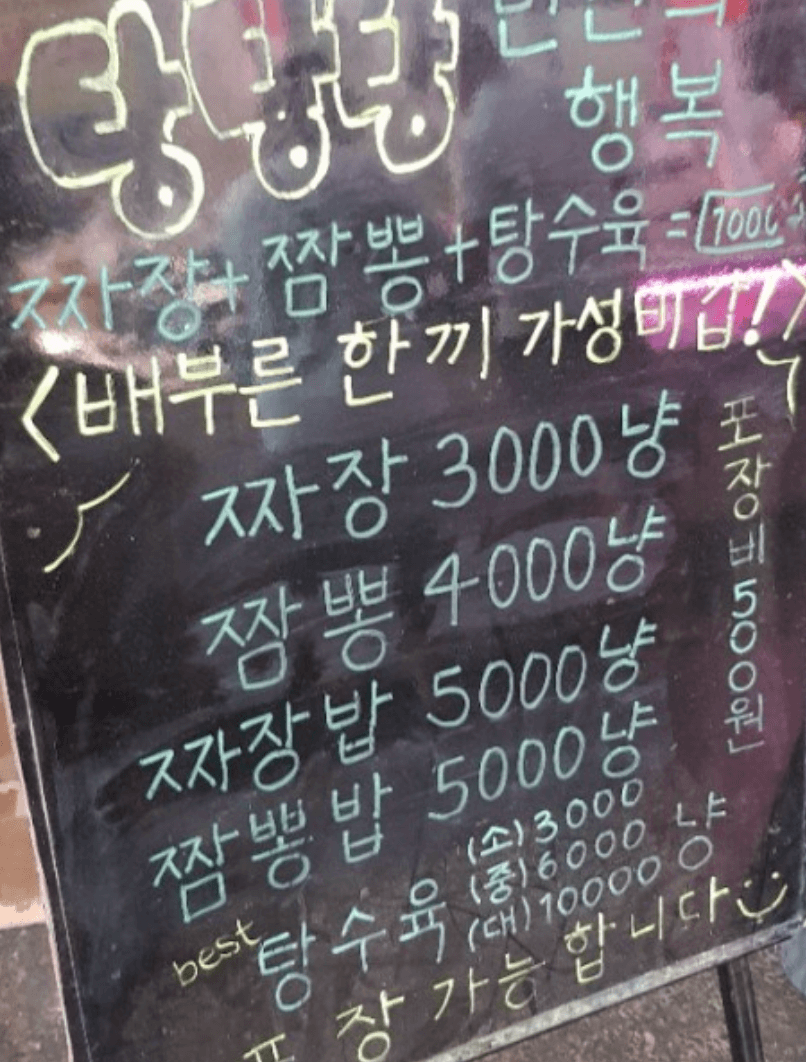 탕탕탕
행복
짜장+짬뽕+탕수육=7000
<배부른 한끼 가성비갑!>
짜장 3000냥
짬뽕 4000냥
짜장밥 5000냥
짬뽕밥 5000냥
best 탕수육 (소)3000
(중)6000 냥
(대)10000
포장가능합니다
포장비500원